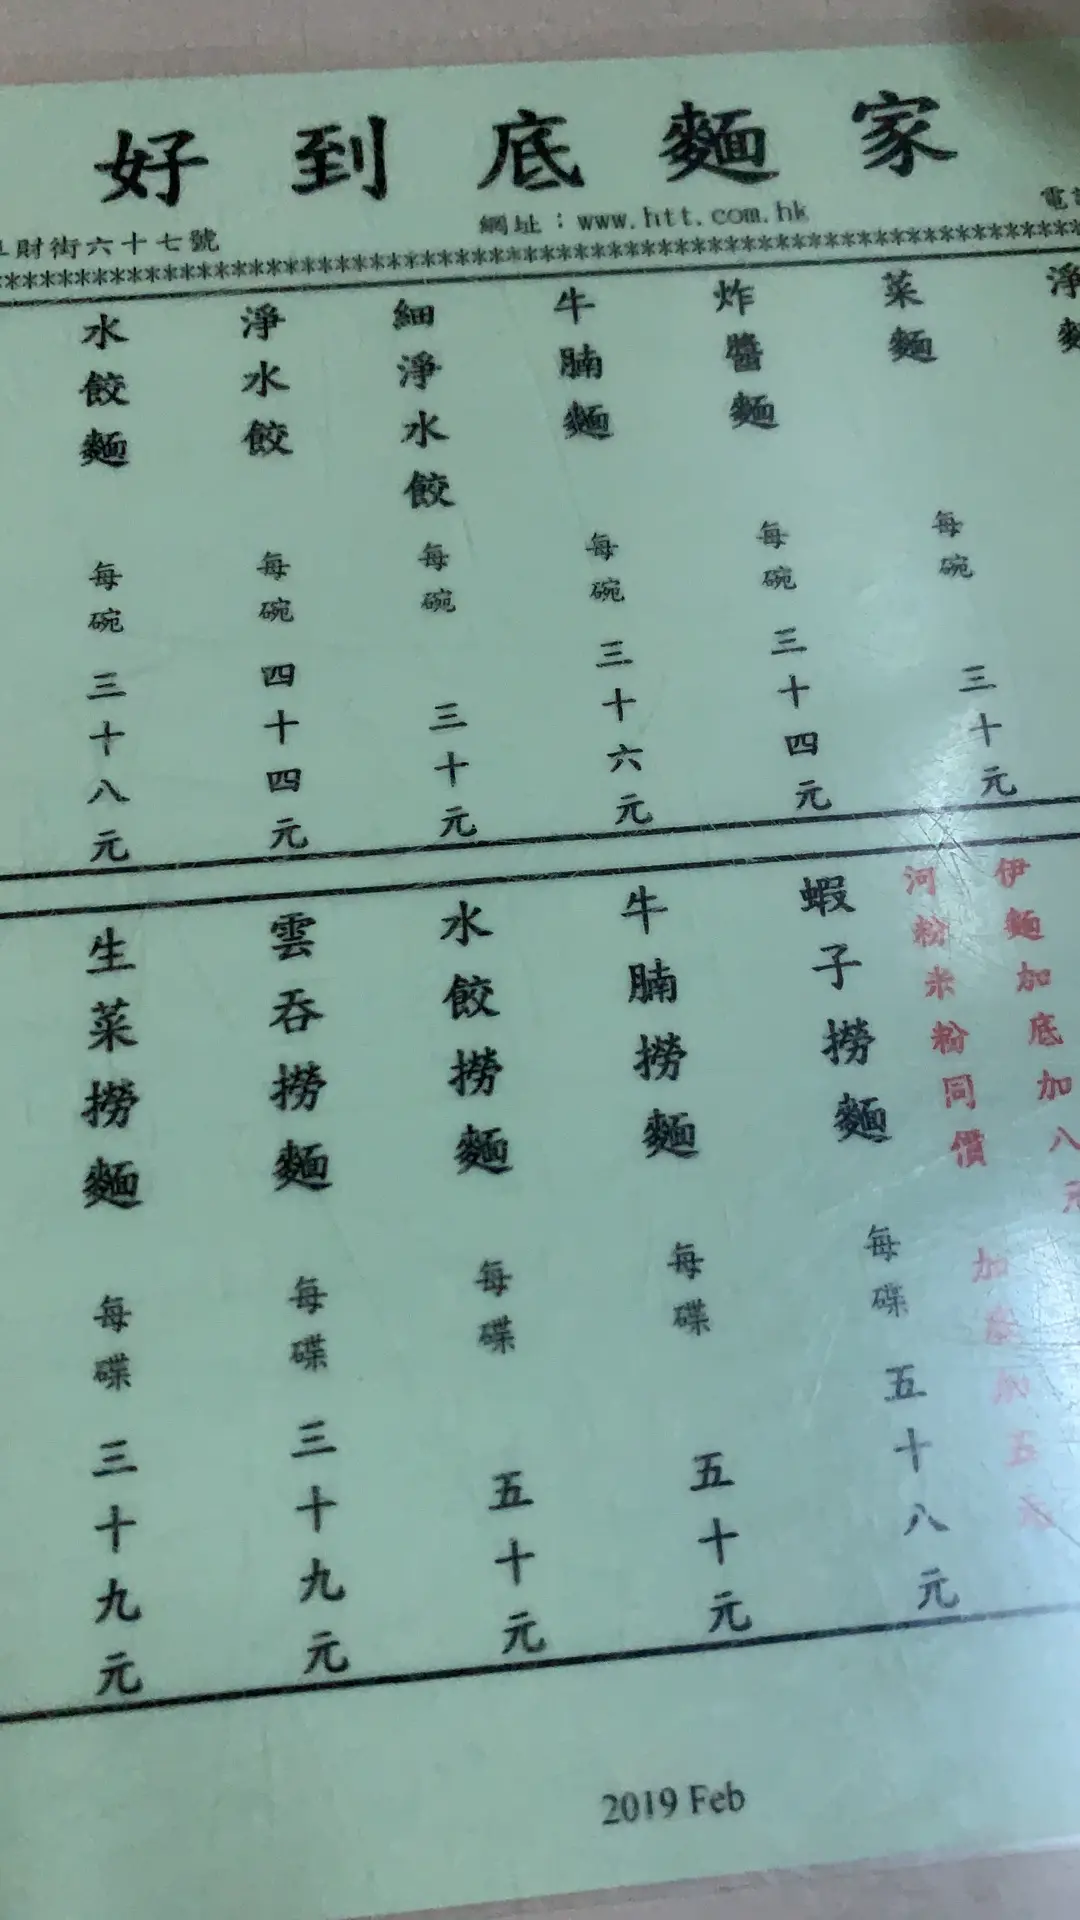 好到底麵家
網址：www.htt.com.hk
財街六十七號
淨麵
菜麵 每碗 三十元
炸醬麵 每碗 三十四元
牛腩麵 每碗 三十六元
細淨水餃 每碗 三十元
淨水餃 每碗 四十四元
水餃麵 每碗 三十八元
伊麵加底加八元
河粉米粉同價
加菜加五元
蝦子撈麵 每碟 五十八元
牛腩撈麵 每碟 五十元
水餃撈麵 每碟 五十元
雲吞撈麵 每碟 三十九元
生菜撈麵 每碟 三十九元
2019 Feb